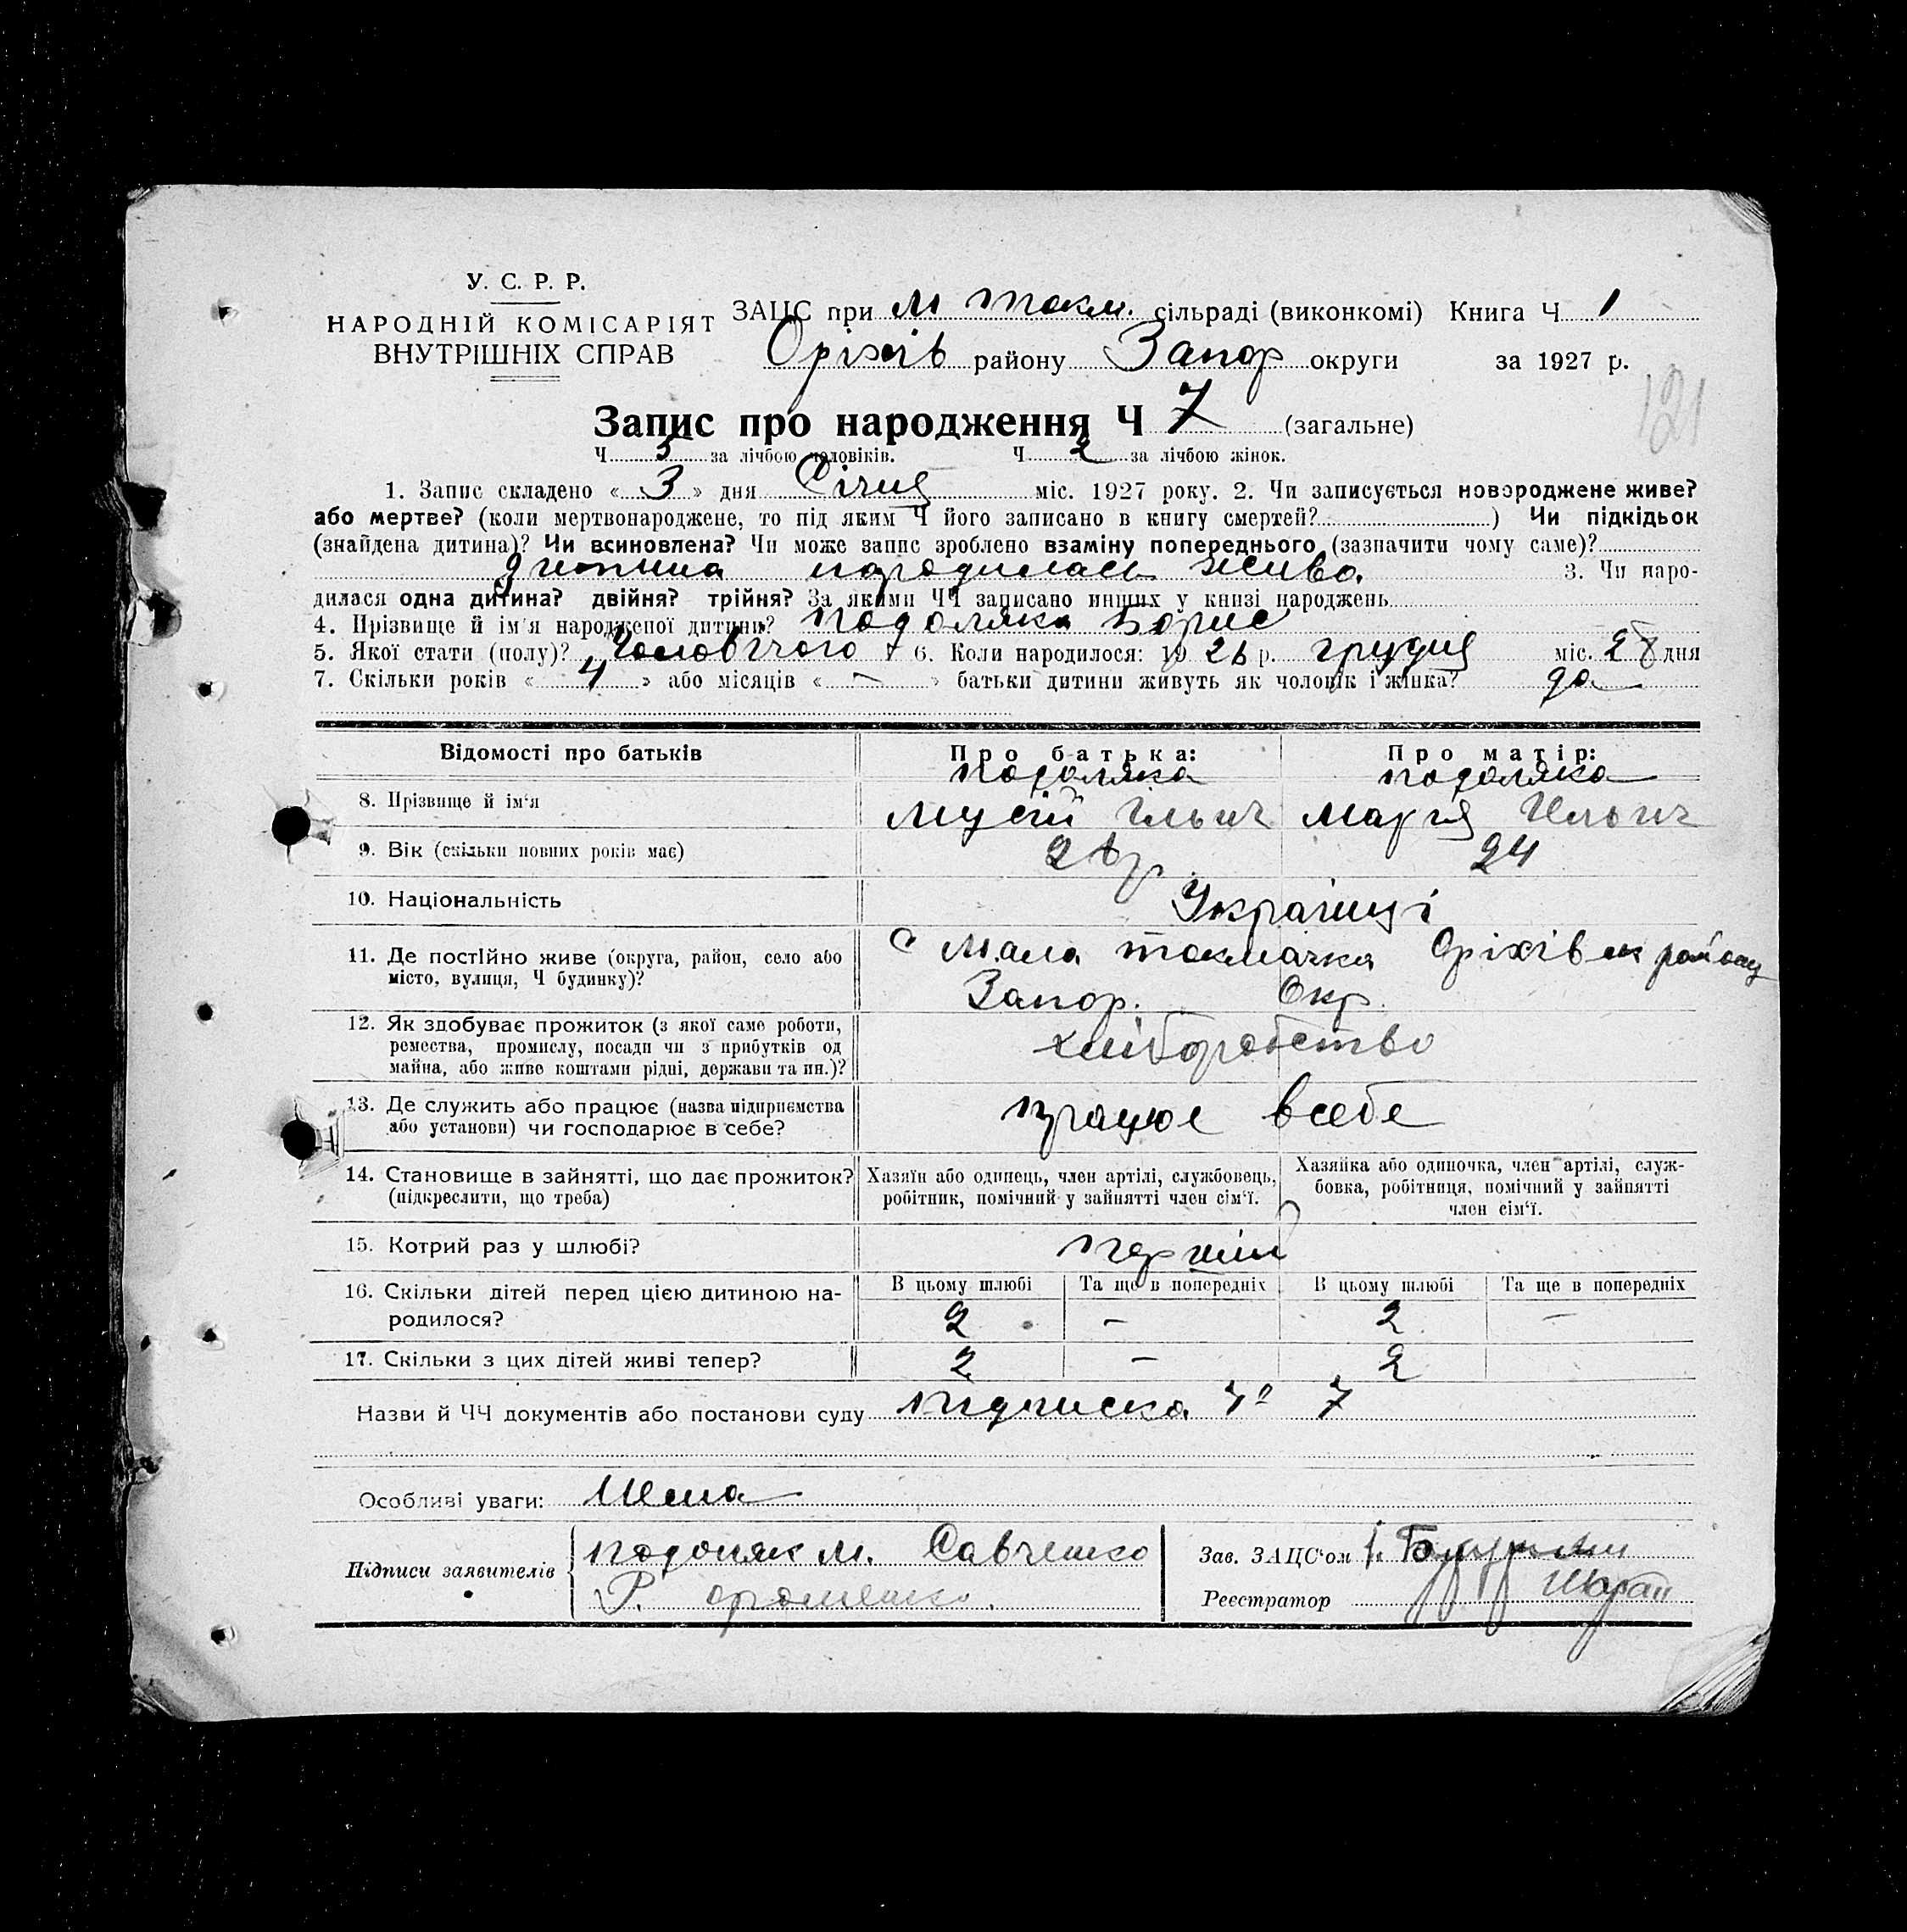 У. С. Р. Р.
НАРОДНІЙ КОМІСАРІЯТ
ВНУТРІШНІХ СПРАВ
ЗАЦС при М Токм. сільраді (виконкомі) Книга Ч 1
Оріхів району Запор округи за 1927 р.
121
Запис про народження Ч 7 (загальне)
Ч 5 за лічбою чоловіків. Ч 2 за лічбою жінок.
1. Запис складено « 3 » дня Січня міс. 1927 року. 2. Чи записується новороджене живе?
або мертве? (коли мертвонароджене, то під яким Ч його записано в книгу смертей? ) Чи підкідьок
(знайдена дитина)? Чи всиновлена? Чи може запис зроблено взаміну попереднього (зазначити чому саме)?
дитина народилась жива 3. Чи наро-
дилася одна дитина? двійня? трійня? За якими ЧЧ записано инших у книзі народжень
4. Прізвище й ім'я народженої дитини? Подоляка Борис
5. Якої стати (полу)? Чоловічого 6. Коли народилося: 19 26 р. грудня міс. 28 дня
7. Скільки років « 4 » або місяців « — » батьки дитини живуть як чоловік і жінка? да
Відомості про батьків Про батька: Про матір:
Подоляка Подоляка
8. Прізвище й ім'я Мусій Ільич Марія Ильич
9. Вік (скільки повних років має) 26 р 24
10. Національність Українці
11. Де постійно живе (округа, район, село або
місто, вулиця, Ч будинку)?
с Мала Токмачка Оріхівск району
Запор. Окр.
12. Як здобуває прожиток (з якої саме роботи,
ремества, промислу, посади чи з прибутків од
майна, або живе коштами рідні, держави та ин.)?
хліборобство
13. Де служить або працює (назва підприємства
або установи) чи господарює в себе?
працює всебе
14. Становище в зайнятті, що дає прожиток?
(підкреслити, що треба)
Хазяїн або одинець, член артілі, службовець,
робітник, помічний у зайнятті член сім'ї.
Хазяйка або одиночка, член артілі, служ-
бовка, робітниця, помічний у зайнятті
член сім'ї.
15. Котрий раз у шлюбі? перший
16. Скільки дітей перед цією дитиною на-
родилося?
В цьому шлюбі Та ще в попередніх В цьому шлюбі Та ще в попередніх
2 — 2 —
17. Скільки з цих дітей живі тепер? 2 — 2
Назви й ЧЧ документів або постанови суду Підписка 7
Особливі уваги: Нема
Підписи заявителів Подоляк М. Савченко
Р.
Зав. ЗАЦС'ом
Реєстратор